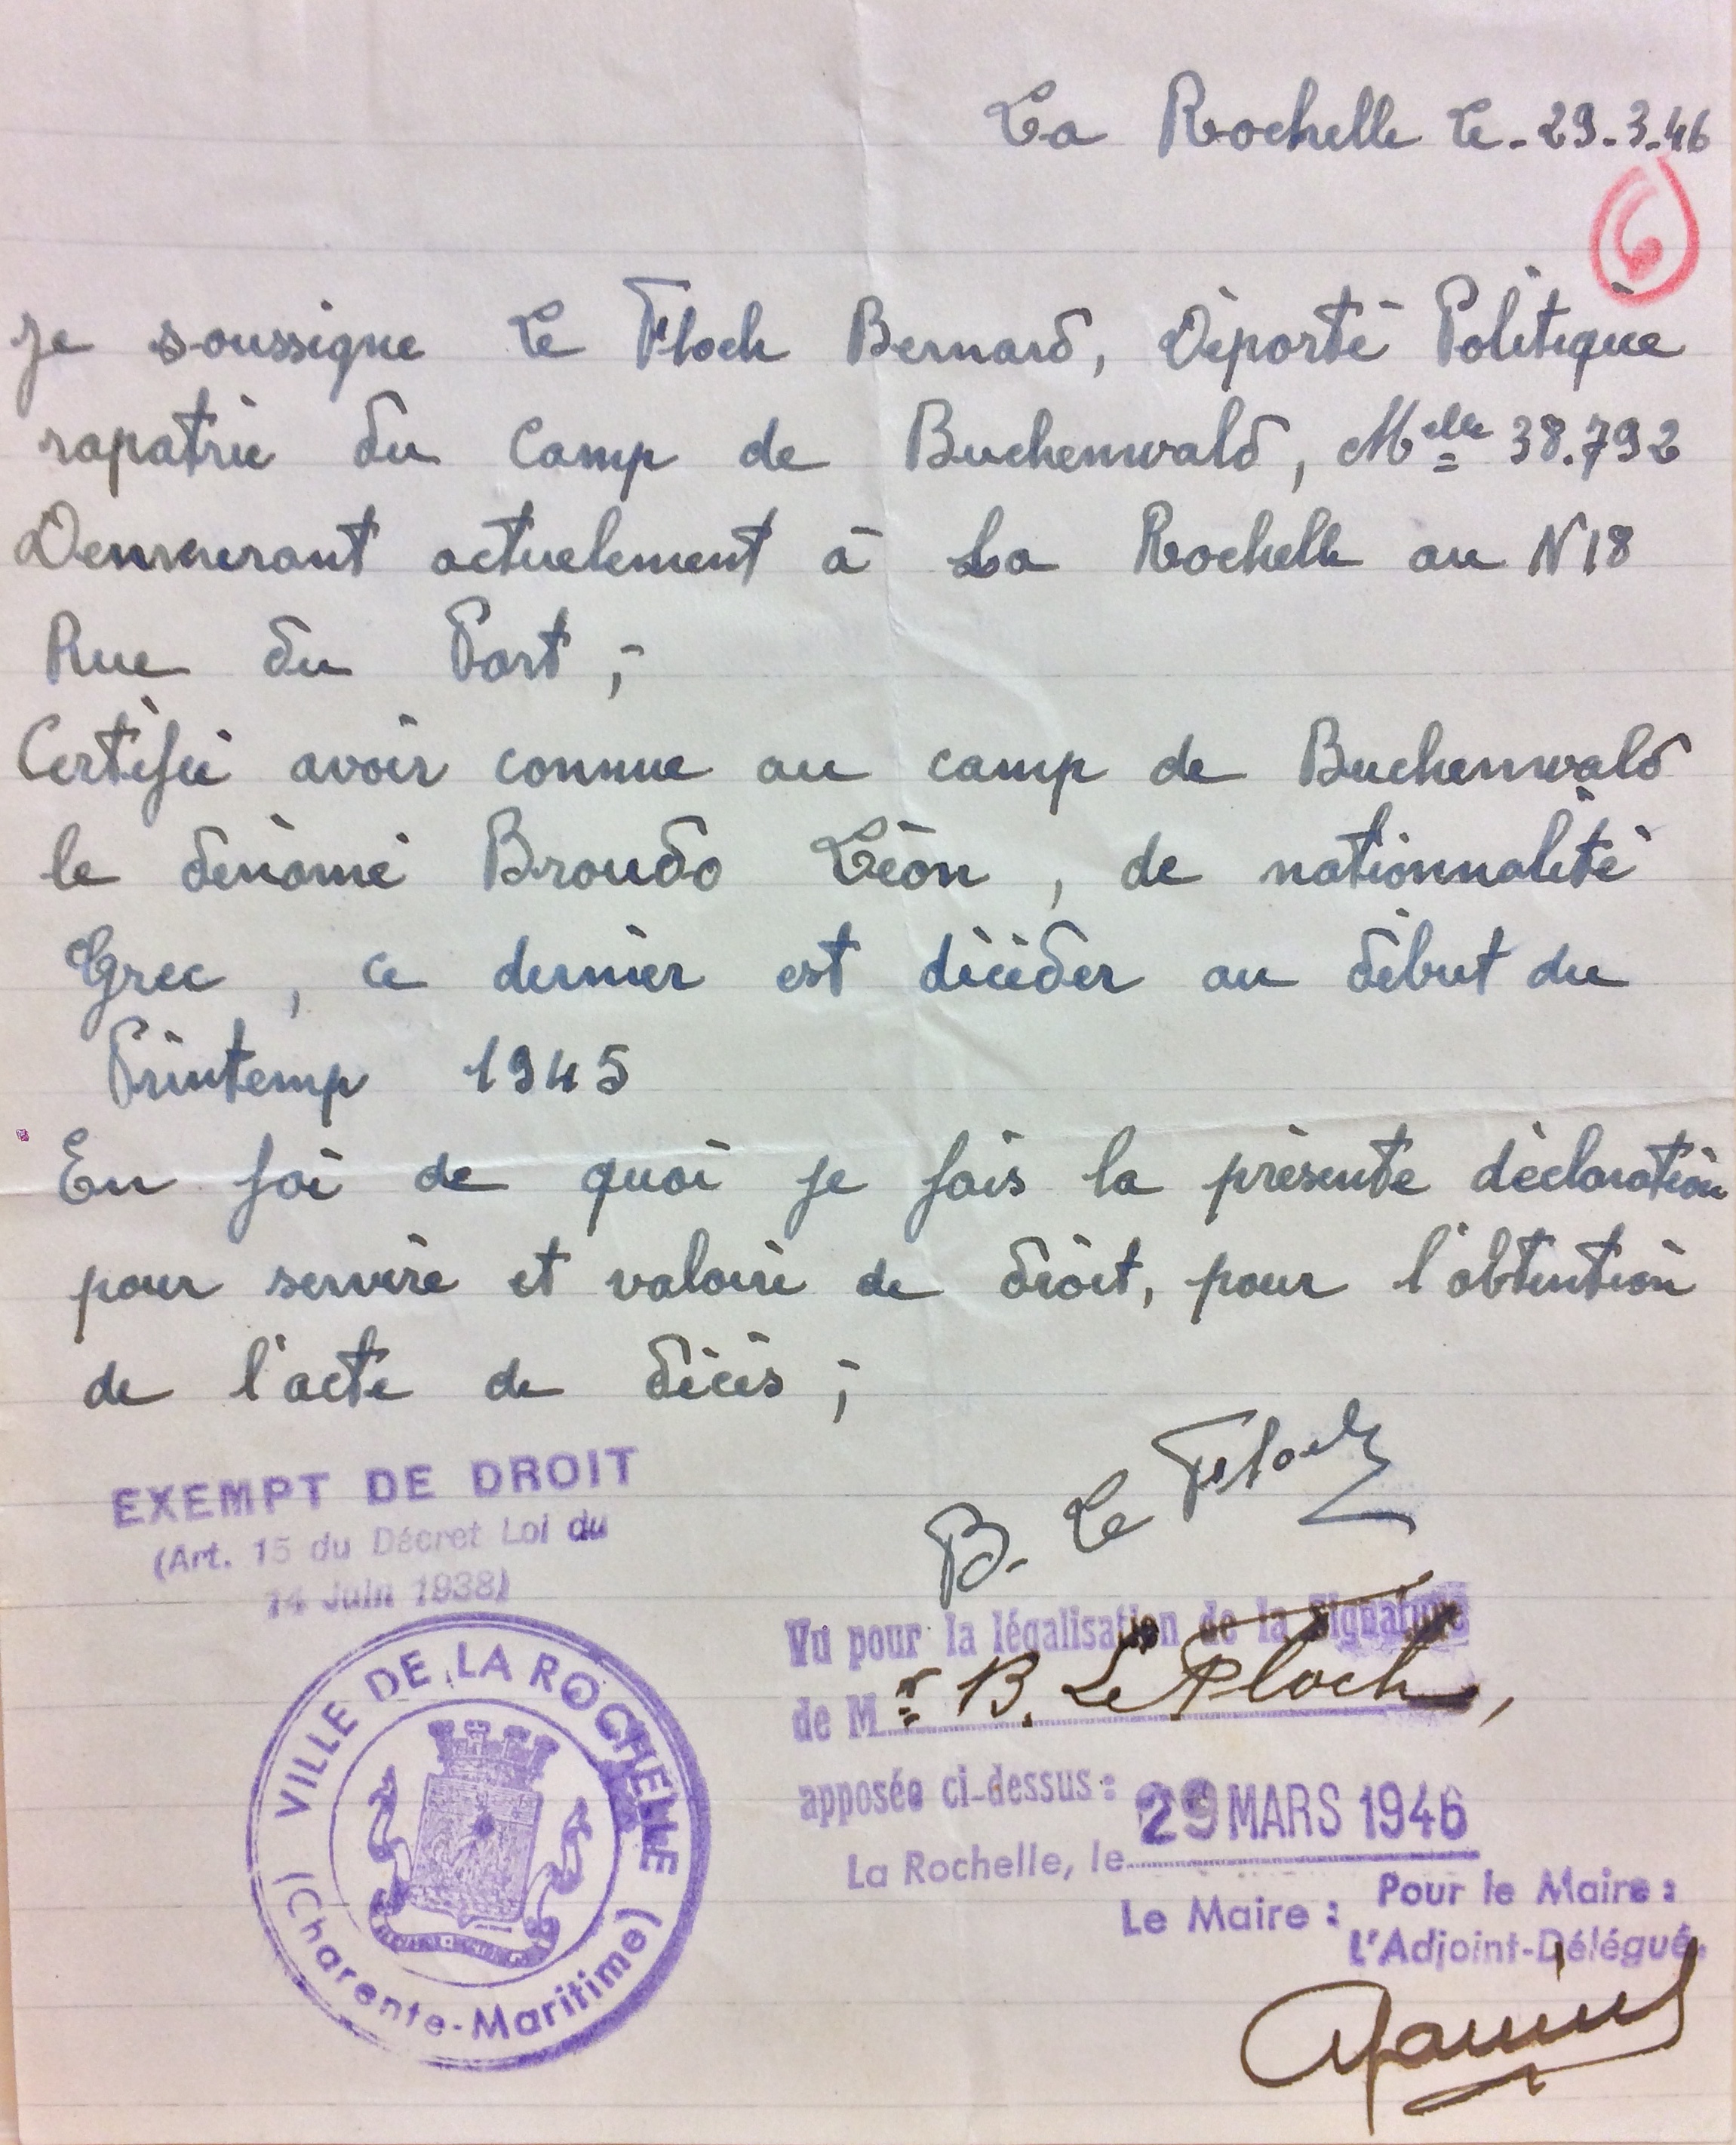 La Rochelle le. 29.3.46
6
Je soussigne Le Floch Bernard, Déporté Politique
rapatrié du Camp de Buchenwald, Melle 38.792
Demeurant actuelement à La Rochelle au N 18
Rue du Port ;
Certifié avoir connue au camp de Buchenwald
le dénomé Broudo Léon, de nationnalité
Grec, ce dernier est décéder au début du
Printemp 1945
En foi de quoi je fais la présente déclaration
pour servire et valoire de droit, pour l'obtention
de l'acte de décès ;
B. Le Floch
EXEMPT DE DROIT
(Art. 15 du Décret Loi du
14 Juin 1938)
Vu pour la légalisation de la Signature
de Mr B. Le Floch,
apposée ci-dessus :
29 MARS 1946
La Rochelle, le
Le Maire :
Pour le Maire :
L'Adjoint-Délégué,
VILLE DE LA ROCHELLE
(Charente-Maritime)